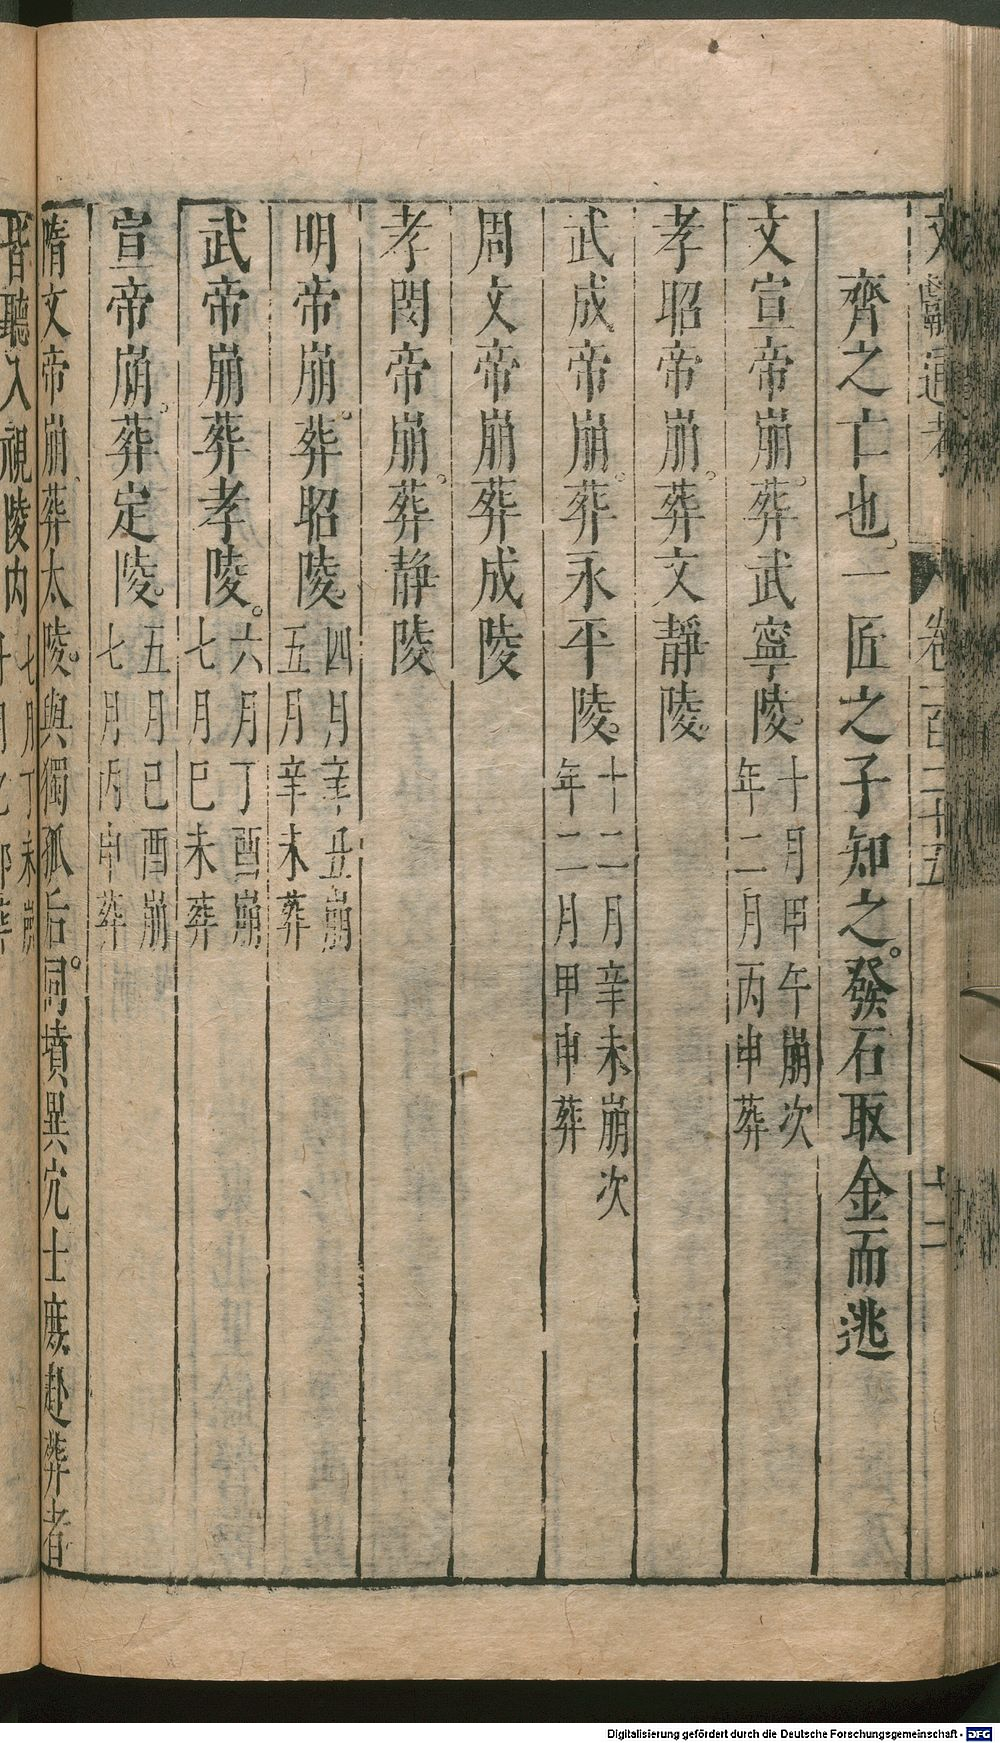 文獻通考 卷一百二十五 十二
齊之亡也一匠之子知之。發石取金而逃
文宣帝崩。葬武寧陵。十月甲午崩次年二月丙申葬
孝昭帝崩。葬文靜陵。
武成帝崩。葬永平陵。十二月辛未崩次年二月甲申葬
周文帝崩葬成陵
孝閔帝崩。葬静陵
明帝崩。葬昭陵。四月辛丑崩五月辛未葬
武帝崩葬孝陵。六月丁酉崩七月巳未葬
宣帝崩。葬定陵。五月己酉崩七月丙申葬
隋文帝崩葬太陵。與獨孤后。同墳異穴士庶赴葬者
皆聽入視陵内七月丁未崩十月乙卯葬
Digitalisierung gefördert durch die Deutsche Forschungsgemeinschaft - DFG